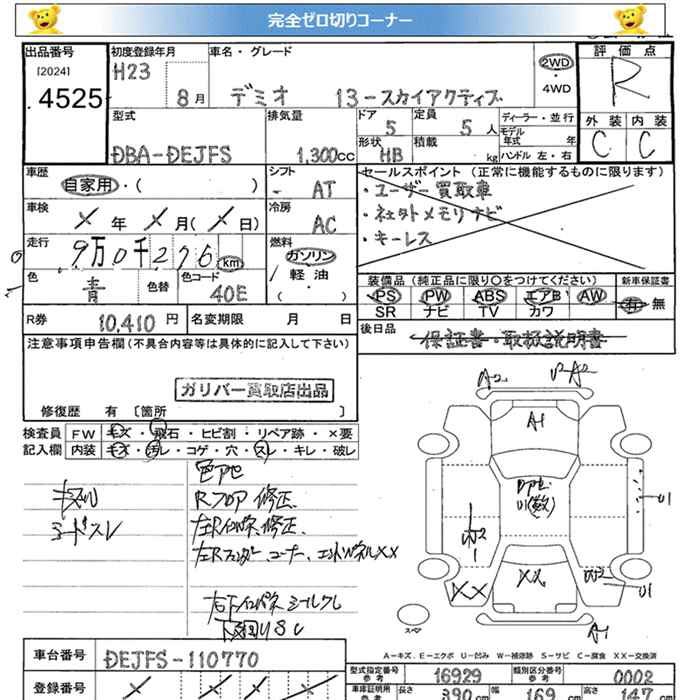 完全ゼロ切りコーナー
出品番号
[2024]
4525
初度登録年月
H23
8月
車名・グレード
デミオ 13-スカイアクティブ
2WD
・
4WD
評価点
R
外装 内装
C C
型式
DBA-DEJFS
排気量
1,300cc
ドア
5
定員
5人
形状
HB
積載
kg
ディーラー・並行
モデル年式 年
ハンドル 左・右
車歴
自家用・( )
シフト
- AT
セールスポイント (正常に機能するものに限ります)
・ユーザー買取車
・社外メモリナビ
・キーレス
車検
× 年 × 月(× 日)
冷房
AC
走行
9万0千276km
燃料
ガソリン
軽油
・( )
色
青
色替
色コード
40E
装備品 (純正品に限り○をつけてください)
PS PW ABS エアB AW
SR ナビ TV カワ
新車保証書
有・無
R券
10,410円
名変期限 月 日
後日品
保証書・取扱説明書
注意事項申告欄(不具合内容等は具体的に記入して下さい)
ガリバー買取店出品
修復歴 有 〔箇所 〕
検査員記入欄
FW キズ・飛石・ヒビ割・リペア跡・×要
内装 キズ・汚レ・コゲ・穴・スレ・キレ・破レ
Rフロア修正
A2
A1
U1
W2
XX
XX
W2
U1
A1
スペア
A-キズ、E-エクボ U-凹み W-補修跡 S-サビ C-腐食 XX-交換済
車台番号
DEJFS-110770
登録番号
型式指定番号
参考
16929
類別区分番号
参考
0002
車庫証明用
長さ
390cm
幅
169cm
高さ
147cm